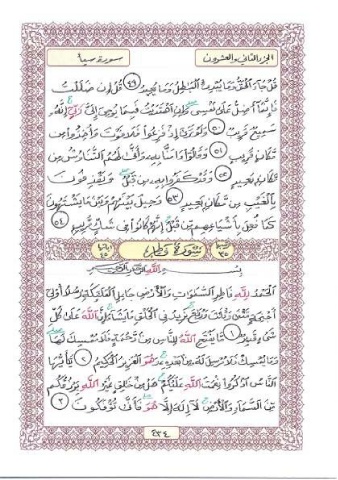 الجزء الثاني والعشرون سورة سبأ
قُلْ جَاءَ الْحَقُّ وَمَا يُبْدِئُ الْبَاطِلُ وَمَا يُعِيدُ ٤٩ قُلْ إِن ضَلَلْتُ
فَإِنَّمَا أَضِلُّ عَلَىٰ نَفْسِي وَإِنِ اهْتَدَيْتُ فَبِمَا يُوحِي إِلَيَّ رَبِّي إِنَّهُ
سَمِيعٌ قَرِيبٌ ٥٠ وَلَوْ تَرَىٰ إِذْ فَزِعُوا فَلَا فَوْتَ وَأُخِذُوا مِن
مَّكَانٍ قَرِيبٍ ٥١ وَقَالُوا آمَنَّا بِهِ وَأَنَّىٰ لَهُمُ التَّنَاوُشُ مِن
مَّكَانٍ بَعِيدٍ ٥٢ وَقَدْ كَفَرُوا بِهِ مِن قَبْلُ وَيَقْذِفُونَ
بِالْغَيْبِ مِن مَّكَانٍ بَعِيدٍ ٥٣ وَحِيلَ بَيْنَهُمْ وَبَيْنَ مَا يَشْتَهُونَ
كَمَا فُعِلَ بِأَشْيَاعِهِم مِّن قَبْلُ إِنَّهُمْ كَانُوا فِي شَكٍّ مُّرِيبٍ ٥٤
٣٥ سورة فاطر ٤٥
بسم الله الرحمن الرحيم
الْحَمْدُ لِلَّهِ فَاطِرِ السَّمَاوَاتِ وَالْأَرْضِ جَاعِلِ الْمَلَائِكَةِ رُسُلًا أُولِي
أَجْنِحَةٍ مَّثْنَىٰ وَثُلَاثَ وَرُبَاعَ يَزِيدُ فِي الْخَلْقِ مَا يَشَاءُ إِنَّ اللَّهَ عَلَىٰ كُلِّ
شَيْءٍ قَدِيرٌ ١ مَّا يَفْتَحِ اللَّهُ لِلنَّاسِ مِن رَّحْمَةٍ فَلَا مُمْسِكَ لَهَا
وَمَا يُمْسِكْ فَلَا مُرْسِلَ لَهُ مِن بَعْدِهِ وَهُوَ الْعَزِيزُ الْحَكِيمُ ٢ يَا أَيُّهَا
النَّاسُ اذْكُرُوا نِعْمَتَ اللَّهِ عَلَيْكُمْ هَلْ مِنْ خَالِقٍ غَيْرُ اللَّهِ يَرْزُقُكُم
مِّنَ السَّمَاءِ وَالْأَرْضِ لَا إِلَٰهَ إِلَّا هُوَ فَأَنَّىٰ تُؤْفَكُونَ ٣
٤٣٤